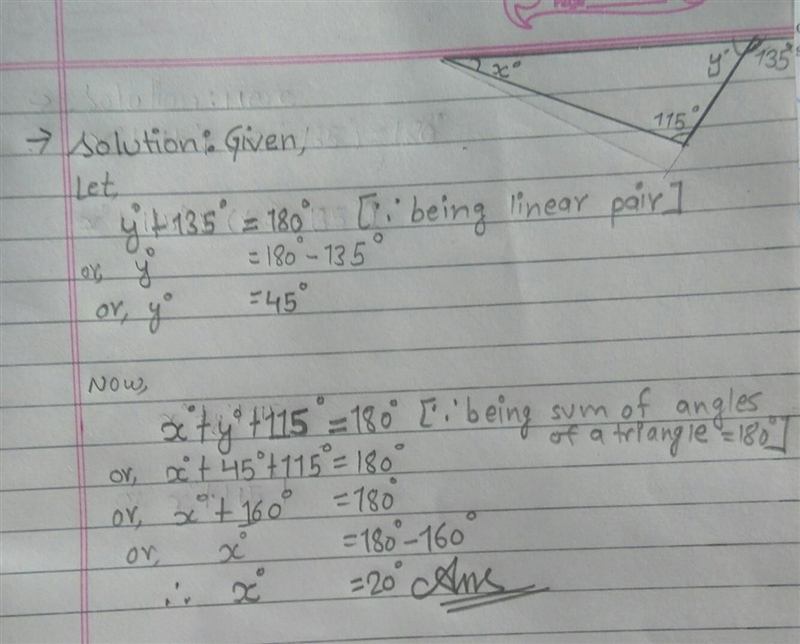 x°
y°
135°
115°
→ Solution: Given,
Let,
y° + 135° = 180° [∵ being linear pair]
or, y° = 180° - 135°
or, y° = 45°
Now,
x° + y° + 115° = 180° [∵ being sum of angles
of a triangle = 180°]
or, x° + 45° + 115° = 180°
or, x° + 160° = 180°
or, x° = 180° - 160°
∴ x° = 20° Ans